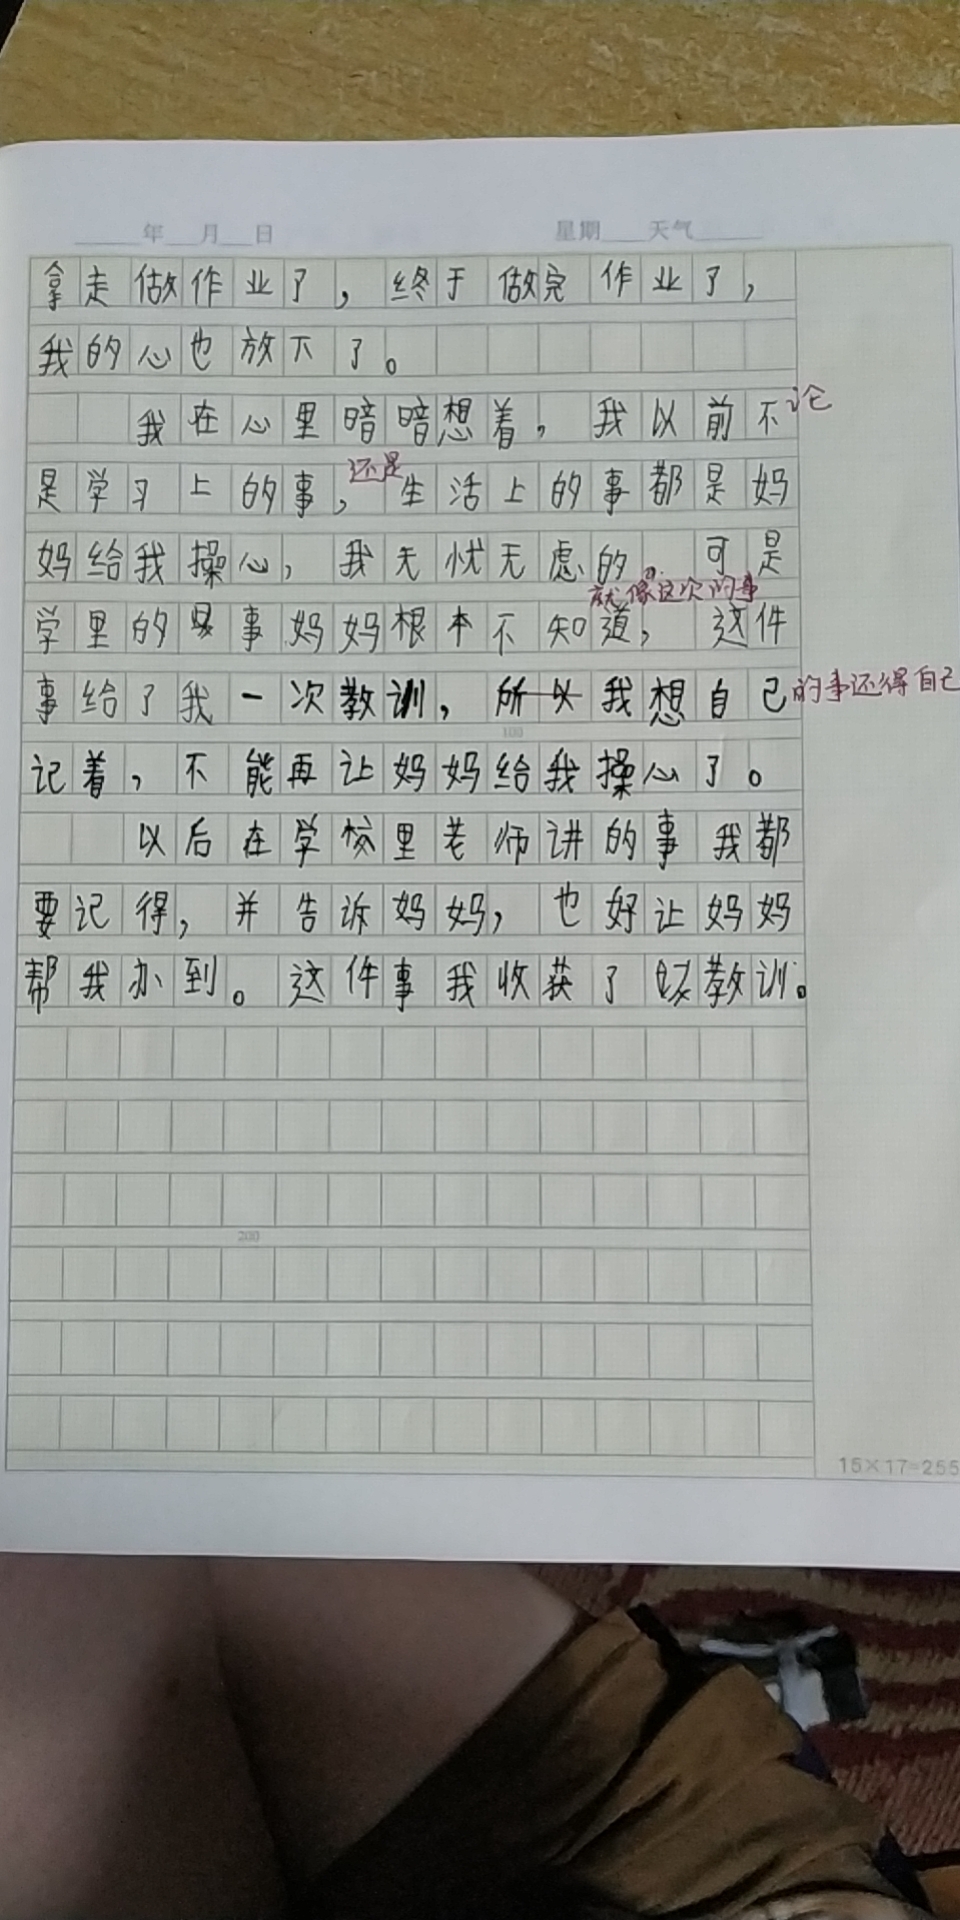 年 月 日 星期 天气
拿走做作业了，终于做完作业了，
我的心也放下了。
我在心里暗暗想着，我以前不论
还是
是学习上的事，生活上的事都是妈
妈给我操心，我无忧无虑的。可是
就像这次的事
学里的事妈妈根本不知道，这件
事给了我一次教训，所以我想自己的事还得自己
100
记着，不能再让妈妈给我操心了。
以后在学校里老师讲的事我都
要记得，并告诉妈妈，也好让妈妈
帮我办到。这件事我收获了教训。
200
15×17=255